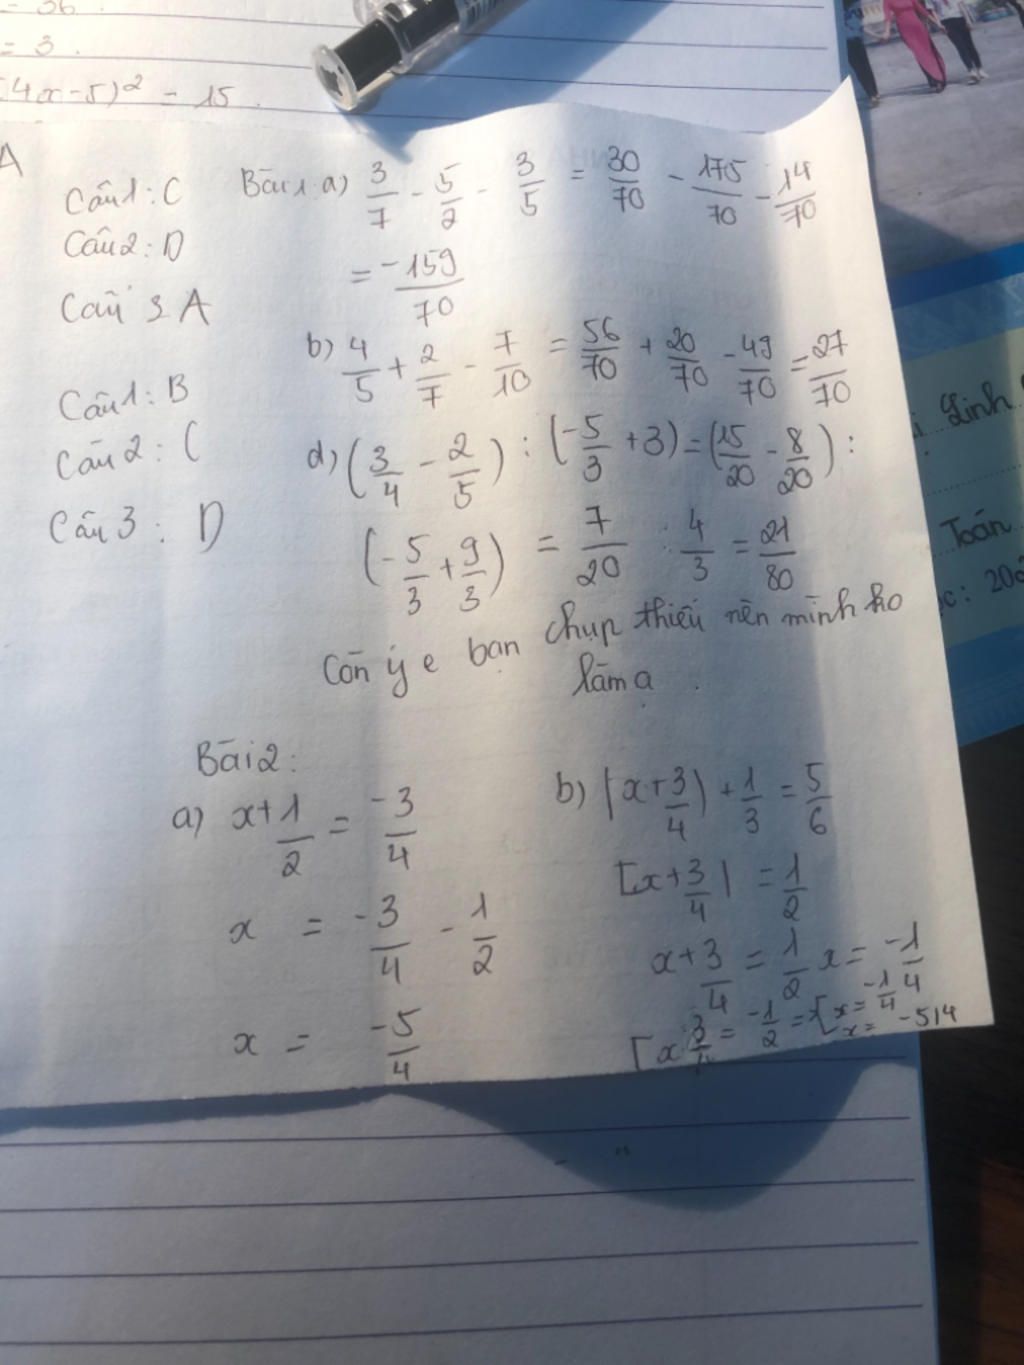 = 36.
= 3.
(4x-5)² = 15.
A
Câu 1: C
Câu 2: D
Câu 3 A
Câu 1: B
Câu 2: C
Câu 3: D
Bài 1 a) 3/7 - 5/2 - 3/5 = 30/70 - 175/70 - 14/70
= -159/70
b) 4/5 + 2/7 - 7/10 = 56/70 + 20/70 - 49/70 = 27/70
d) (3/4 - 2/5) : (-5/3 + 3) = (15/20 - 8/20) :
(-5/3 + 9/3) = 7/20 : 4/3 = 21/80
Còn ý e bạn chụp thiếu nên mình ko
làm ạ.
Bài 2:
a) x + 1/2 = -3/4
x = -3/4 - 1/2
x = -5/4
b) |x + 3/4| + 1/3 = 5/6
|x + 3/4| = 1/2
x + 3/4 = 1/2 x = -1/4
[x 3/4 = -1/2 => [x = -1/4
x = -5/4
Linh
Toán